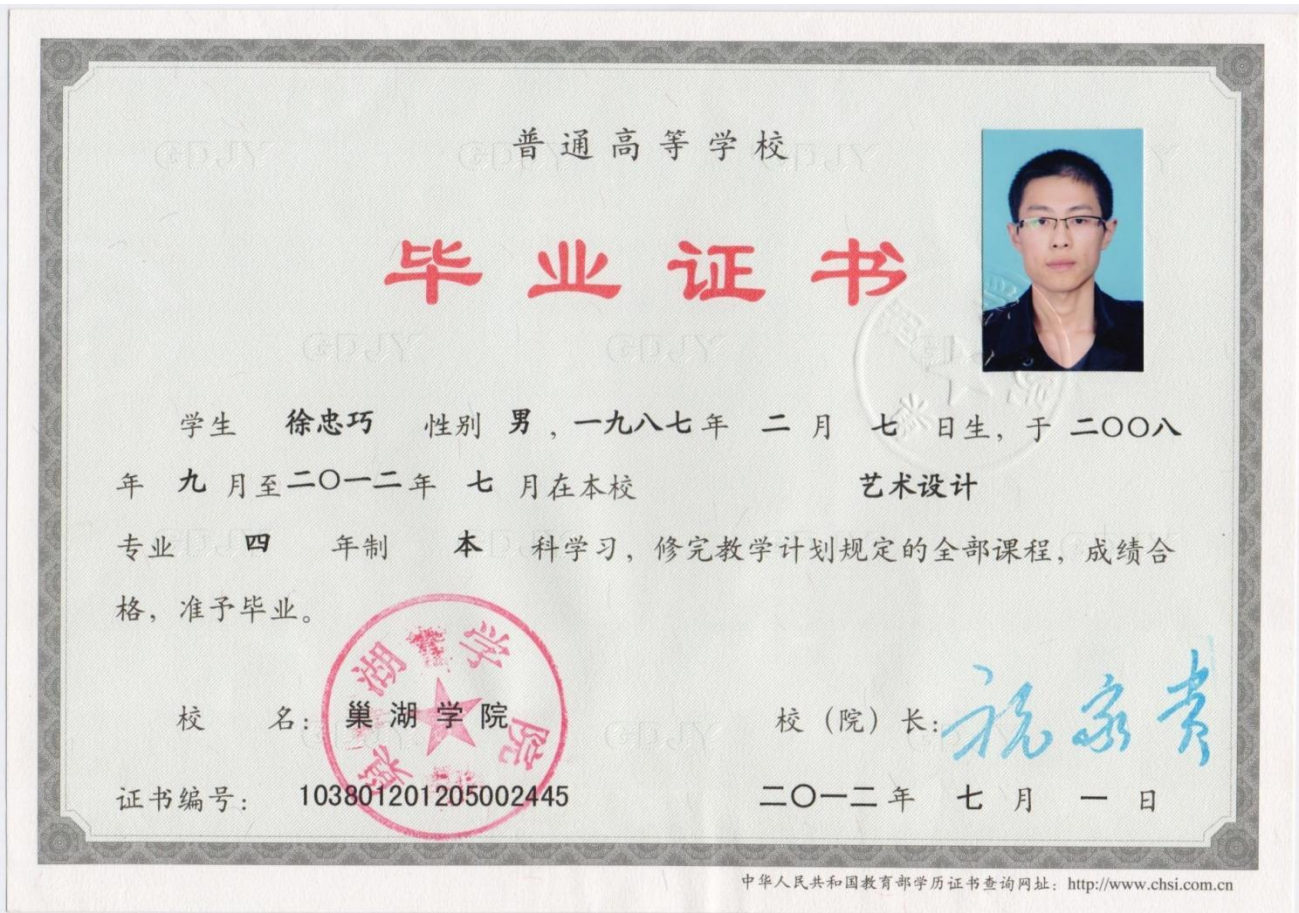 普通高等学校
毕业证书
学生 徐忠巧 性别 男，一九八七年 二 月 七 日生，于 二〇〇八
年 九 月至二〇一二年 七 月在本校 艺术设计
专业 四 年制 本 科学习，修完教学计划规定的全部课程，成绩合
格，准予毕业。
校 名：巢湖学院
校（院）长：祝家贵
证书编号：103801201205002445
二〇一二年 七 月 一 日
巢湖学院
中华人民共和国教育部学历证书查询网址：http://www.chsi.com.cn